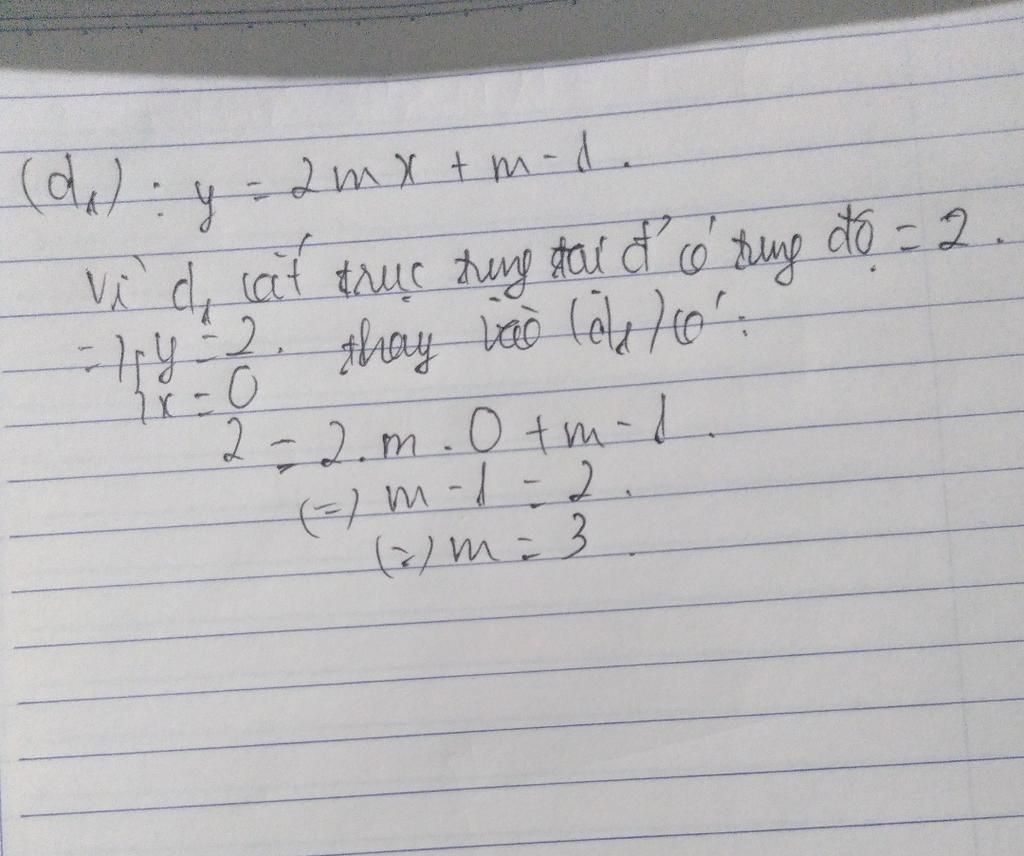 (d₁) : y = 2mx + m - 1.
Vì d₁ cắt trục tung tại đ' có tung độ = 2.
=> { y = 2. thay vào (d₁) có :
x = 0
2 = 2.m.0 + m - 1.
(=) m - 1 = 2.
(=) m = 3.